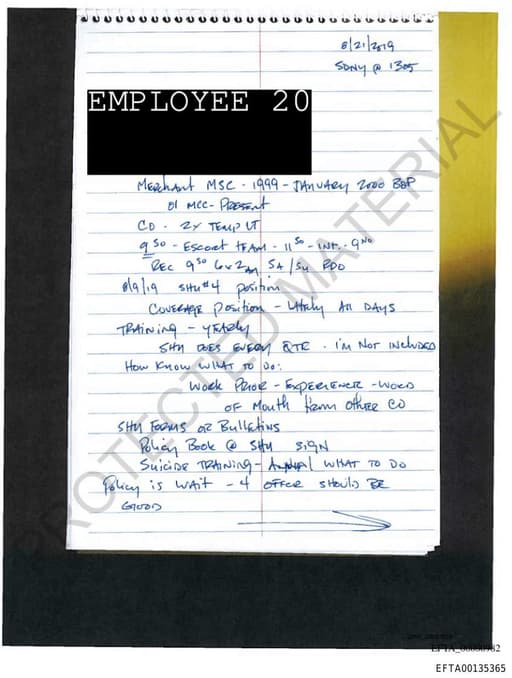 8/21/2019
SDNY @ 1305
EMPLOYEE 20
Merchant MSC - 1999 - January 2000 BOP
01 MCC - Present
CO - 2x Temp LT
9 50 - Escort Team - 11 50 - Int.
Rec 9 50 6x2 SA/SU RDO
8/9/19 SHU #4 position
Coverage position - Lately All Days
Training - yearly
SHU does every QTR - I'm not included
How know what to do:
Work Prior - Experience - Word
of Mouth from other CO
SHU Forms or Bulletins
Policy Book @ SHU sign
Suicide Training - Annual what to do
Policy is wait - 4 offer should be
good
PROTECTED MATERIAL
EFTA00135365